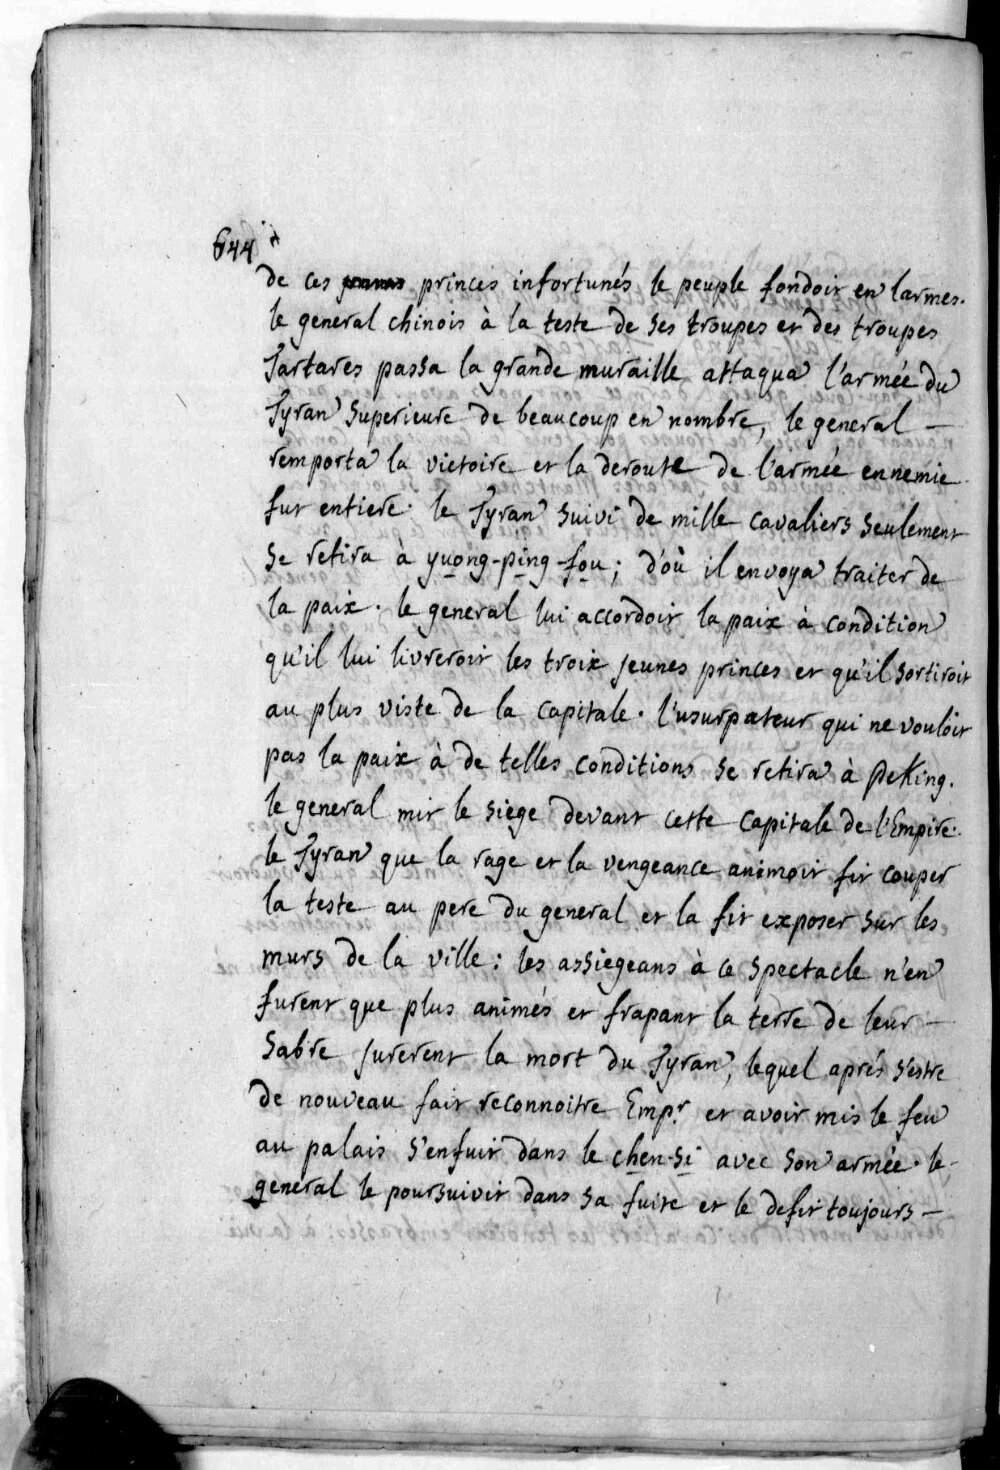 644
de ces princes infortunés le peuple fondoit en larmes.
le general chinois à la teste de ses troupes et des troupes
Tartares passa la grande muraille attaqua l'armée du
Tyran superieure de beaucoup en nombre, le general —
remporta la victoire et la deroute de l'armée ennemie
fut entiere. le Tyran suivi de mille cavaliers seulement
se retira à yuong-ping-fou; d'où il envoya traiter de
la paix. le general lui accordoit la paix à condition
qu'il lui livreroit les troix jeunes princes et qu'il sortiroit
au plus viste de la capitale. l'usurpateur qui ne vouloit
pas la paix à de telles conditions se retira à PeKing.
le general mit le siege devant cette capitale de l'Empire.
le Tyran que la rage et la vengeance animoit fit couper
la teste au pere du general et la fit exposer sur les
murs de la ville: les assiegeans à ce spectacle n'en
furent que plus animés et frapant la terre de leur —
sabre jurerent la mort du Tyran, lequel aprés s'estre
de nouveau fait reconnoitre Empr et avoir mis le feu
au palais s'enfuit dans le chen-si avec son armée. le
general le poursuivit dans sa fuite et le defit toujours —